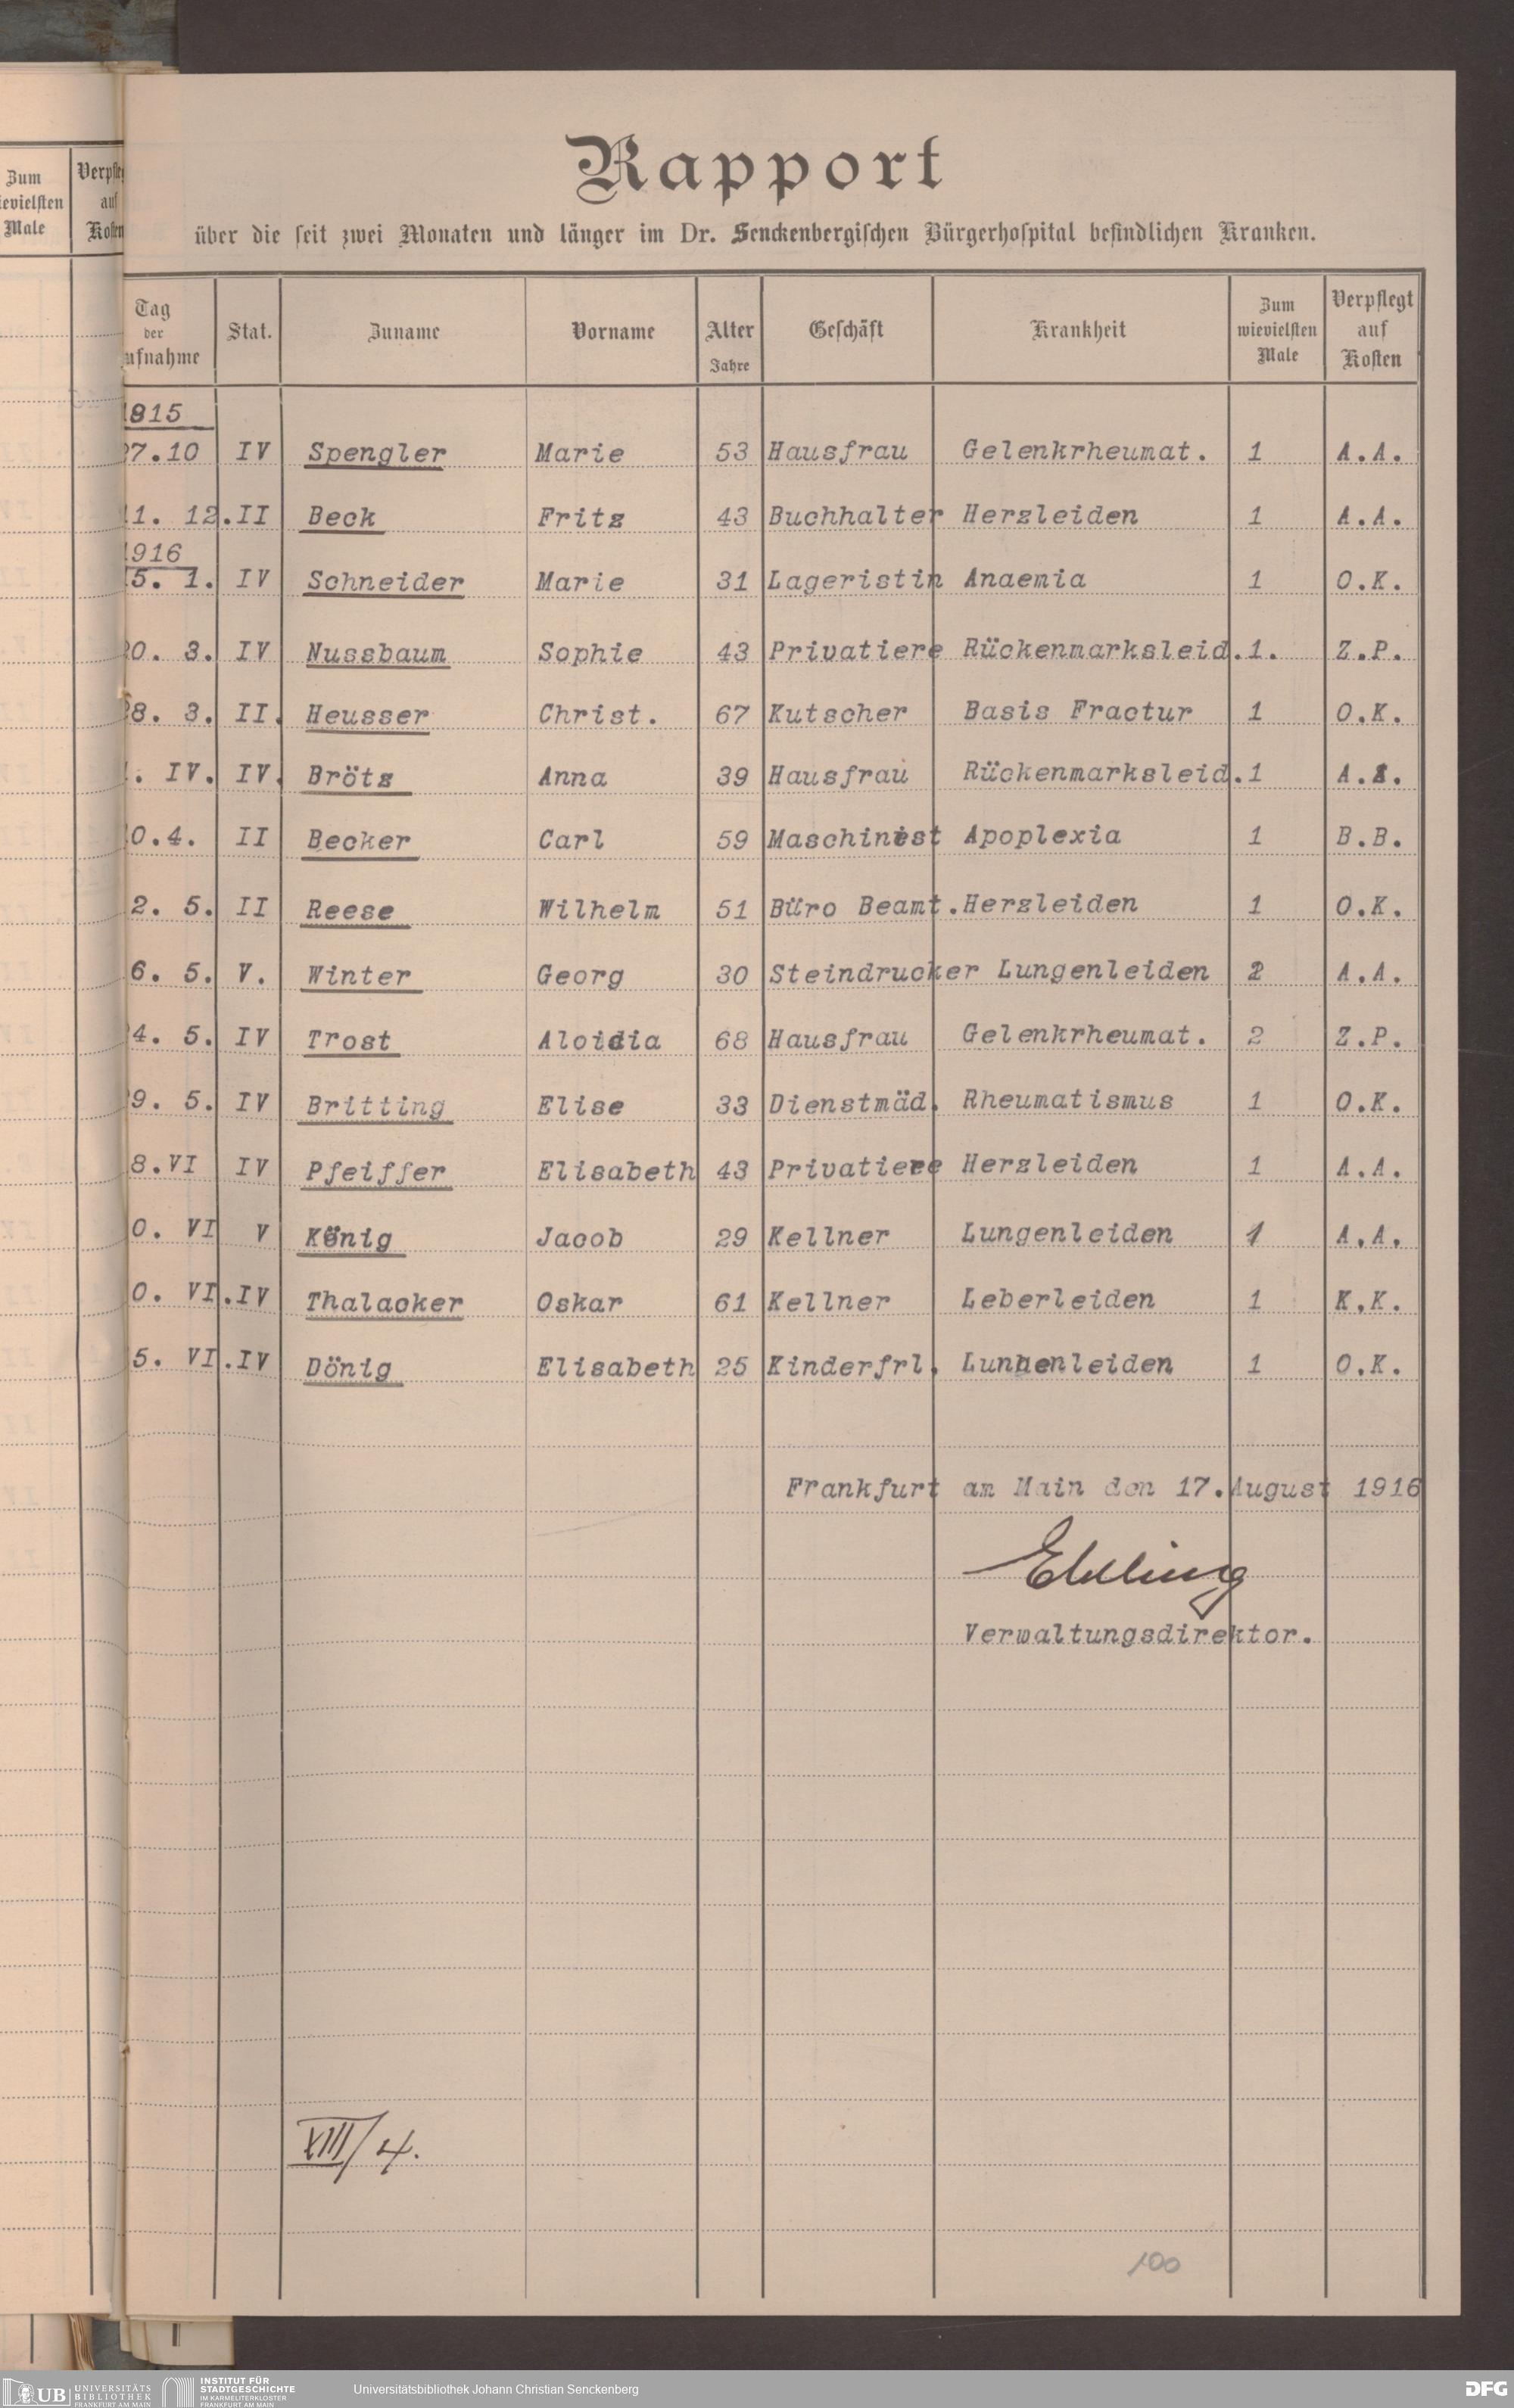 Zum
ievielsten
Male
Verpfleg
auf
Kosten
Rapport
über die seit zwei Monaten und länger im Dr. Senckenbergischen Bürgerhospital befindlichen Kranken.
Tag der ufnahme Stat. Zuname Vorname Alter Jahre Geschäft Krankheit Zum wievielsten Male Verpflegt auf Kosten
1815
27.10 IV Spengler Marie 53 Hausfrau Gelenkrheumat. 1 A.A.
11. 12. II Beck Fritz 43 Buchhalter Herzleiden 1 A.A.
1916
15. 1. IV Schneider Marie 31 Lageristin Anaemia 1 O.K.
20. 3. IV Nussbaum Sophie 43 Privatiere Rückenmarksleid. 1. Z.P.
28. 3. II. Heusser Christ. 67 Kutscher Basis Fractur 1 O.K.
1. IV. IV. Brötz Anna 39 Hausfrau Rückenmarksleid. 1 A.A.
0.4. II Becker Carl 59 Maschinist Apoplexia 1 B.B.
2. 5. II Reese Wilhelm 51 Büro Beamt. Herzleiden 1 O.K.
6. 5. V. Winter Georg 30 Steindrucker Lungenleiden 2 A.A.
4. 5. IV Trost Aloisia 68 Hausfrau Gelenkrheumat. 2 Z.P.
9. 5. IV Britting Elise 33 Dienstmäd. Rheumatismus 1 O.K.
8.VI IV Pfeiffer Elisabeth 43 Privatiere Herzleiden 1 A.A.
0. VI V König Jacob 29 Kellner Lungenleiden 1 A.A.
0. VI. IV Thalacker Oskar 61 Kellner Leberleiden 1 K.K.
5. VI. IV Dönig Elisabeth 25 Kinderfrl. Lungenleiden 1 O.K.
Frankfurt am Main den 17. August 1916
Verwaltungsdirektor.
XIII/4.
100
UB UNIVERSITÄTS
BIBLIOTHEK
FRANKFURT AM MAIN
INSTITUT FÜR
STADTGESCHICHTE
IM KARMELITERKLOSTER
FRANKFURT AM MAIN
Universitätsbibliothek Johann Christian Senckenberg
DFG